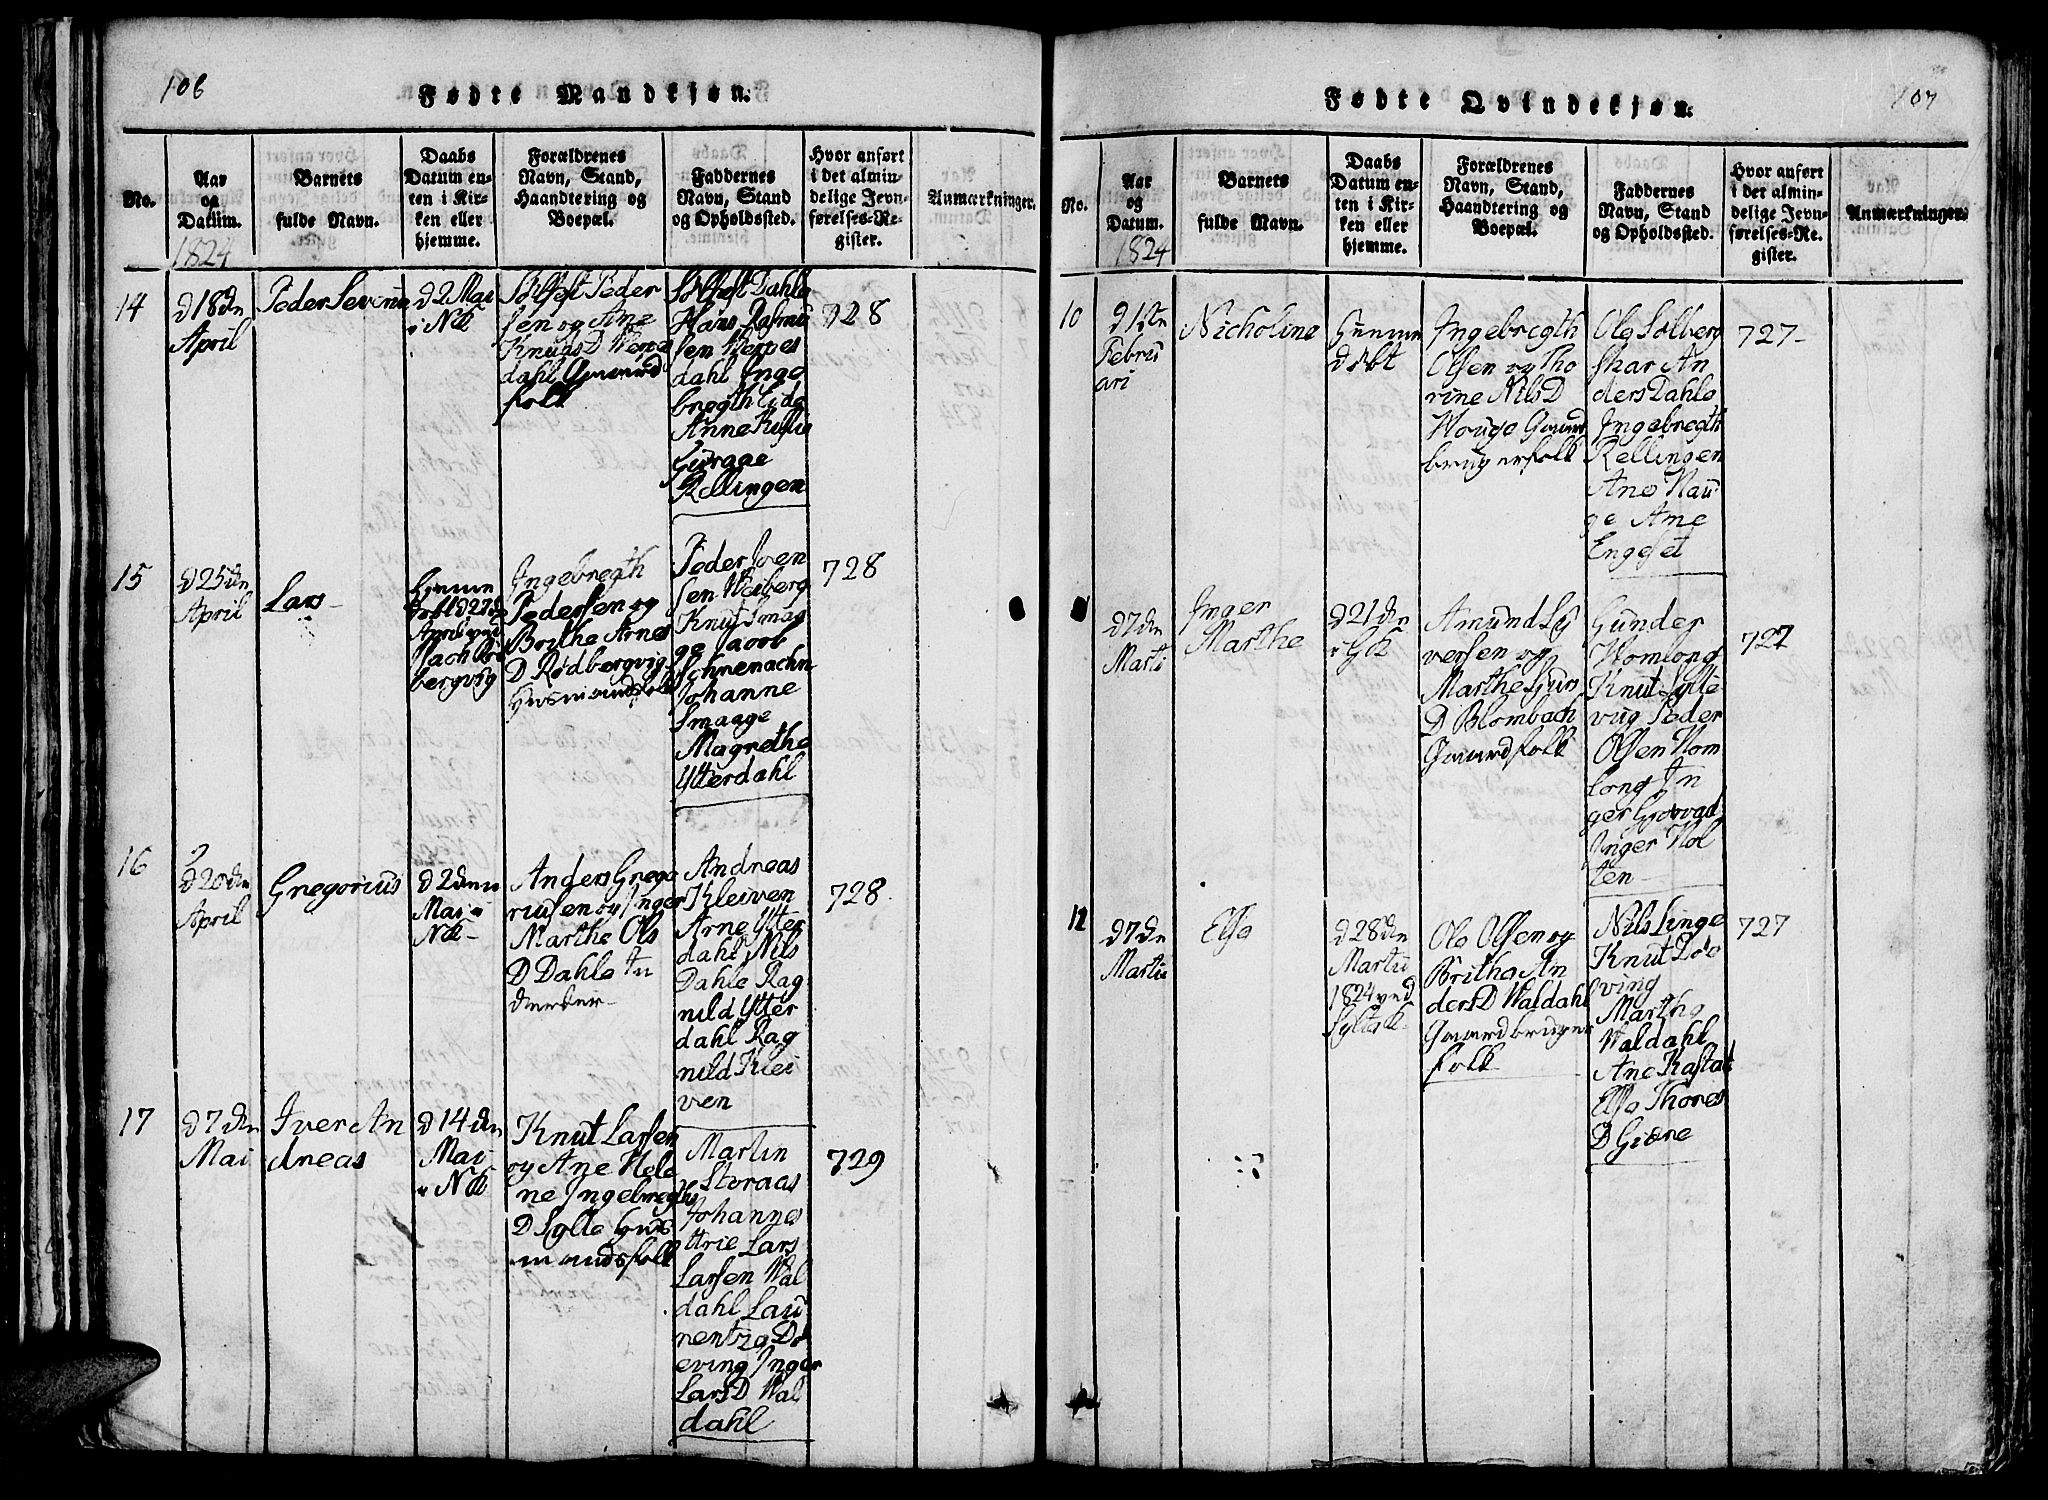 106
Fødte Mandkjøn.
No.
Aar
og
Datum.
Barnets
fulde Navn.
Daabs
Datum en-
ten i Kir-
ken eller
hjemme.
Forældrenes
Navn, Stand,
Haandtering og
Boepæl.
Faddernes
Navn, Stand
og Opholdssted.
Hvor anført
i det almin-
delige Jevn-
førelses-Re-
gister.
Anmærkninger.
1824
14
d 18dn
April
Peder Severin
d 2 Mai
i NK
Sølfest Peder
sen og Ane
Knuds D Werpe
dahl Gaard
folk
Sølfest Dahle
Hans Rasmu
sen Werpes
dahl Inge
bregth Lide
Anne
Rellingen
728
15
d 25dn
April
Lars
d 27de
April ved
bergvig
Ingebregth
Pedersen og
Brithe Arnes
D Rødbergvig
Husmandsfolk
Peder Joen
sen Weiberg
Knut Smaa
ge Jacob
Johanne
Smaage
Magrethe
Ytterdahl
728
16
d 20dn
April
Gregorius
d 2den
Mai i
NK
Anders Grego
riusen og Inger
Marthe Ols
D Dahle In
derster
Andreas
Kleiven
Arne Ytter
dahl Nils
Dahle Rag
nild Ytter
dahl Rag
nild Klei
ven
728
17
d 7dn
Mai
Iver An
dreas
d 14den
Mai
i NK
Knut Larsen
og Ane Hele
ne Ingebregths
D Sylte Huus
mandsfolk
Martin
Storaas
Johannes
Lars
Larsen Wal
dahl Lau
rentze Dø
eving Inger
Lars D Wal
dahl
729
107
Fødte Qvindekjøn.
No.
Aar
og
Datum.
Barnets
fulde Navn.
Daabs
Datum en-
ten i Kir-
ken eller
hjemme.
Forældrenes
Navn, Stand,
Haandtering og
Boepæl.
Faddernes
Navn, Stand
og Opholdssted.
Hvor anført
i det almin-
delige Jevn-
førelses-Re-
gister.
Anmærkninger.
1824
10
Febru
ari
Nicholine
Hiemme
døbt
Ingebregth
Olsen og Tho
rine Nils D
Houge Gaard
brugerfolk
Ole Solberg
skar An
ders Dahle
Ingebregth
Rellingen
Ane Hau
ge Ane
Engeset
727
d 7dn
Marti
Inger
Marthe
d 21dn
i GK
Amund Sy
versen og
Marthe Sjurs
D Blombach
Gaardfolk
Gunder
Homlong
Knut Sylte
vig Peder
Olsen Hom
long In
ger Grovad
Inger Hol
ten
727
12
d 7dn
Martii
Else
d 28dn
Martii
1824 ved
Sylte K
Ole Olsen og
Brithe An
ders D Waldahl
Gaardbruger
folk
Nils Linge
Knut Døe
ving
Marthe
Waldahl
Ane Kastad
Else Thores
D Giære
727